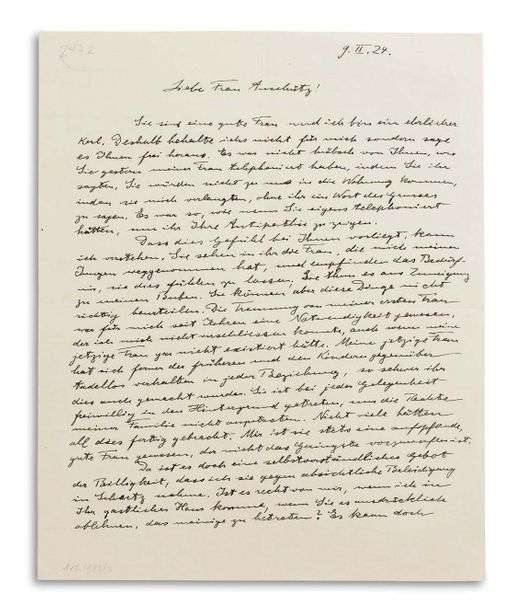 2472
9. II. 24.
Liebe Frau Anschütz!
Sie sind eine gute Frau und ich bin ein ehrlicher
Kerl. Deshalb behalte ichs nicht für mich sondern sage
es Ihnen frei heraus. Es war nicht hübsch von Ihnen, wie
Sie gestern meiner Frau telephoniert haben, indem Sie ihr
sagten, Sie würden nicht zu uns in die Wohnung kommen,
indem sie mich verlangten, ohne ihr ein Wort des Grusses
zu sagen. Es war so, wie wenn Sie eigens telephoniert
hätten, um ihr Ihre Antipathie zu zeigen.
Dass dies Gefühl bei Ihnen vorliegt, kann
ich verstehen. Sie sehen in ihr die Frau, die mich meinen
Jungen weggenommen hat, und empfinden das Bedürf-
nis, sie dies fühlen zu lassen. Sie thun es aus Zuneigung
zu meinen Buben. Sie können aber diese Dinge nicht
richtig beurteilen. Die Trennung von meiner ersten Frau
war für mich seit Jahren eine Notwendigkeit gewesen,
der ich mich nicht verschliessen konnte, auch wenn meine
jetzige Frau gar nicht existiert hätte. Meine jetzige Frau
hat sich ferner der früheren und den Kindern gegenüber
tadellos verhalten in jeder Beziehung, so schwer ihr
dies auch gemacht wurde. Sie ist bei jeder Gelegenheit
freiwillig in den Hintergrund getreten, um die Rechte
meiner Familie nicht anzutasten. Nicht viele hätten
all dies fertig gebracht. Mir ist sie stets eine aufopfernde,
gute Frau gewesen, der nicht das Geringste vorzuwerfen ist.
Da ist es doch eine selbstverständliches Gebot
der Billigkeit, dass ich sie gegen absichtliche Beleidigung
in Schutz nehme. Ist es recht von mir, wenn ich in
Ihr gastliches Haus komme, wenn Sie es ausdrücklich
ablehnen, das meinige zu betreten? Es kann doch